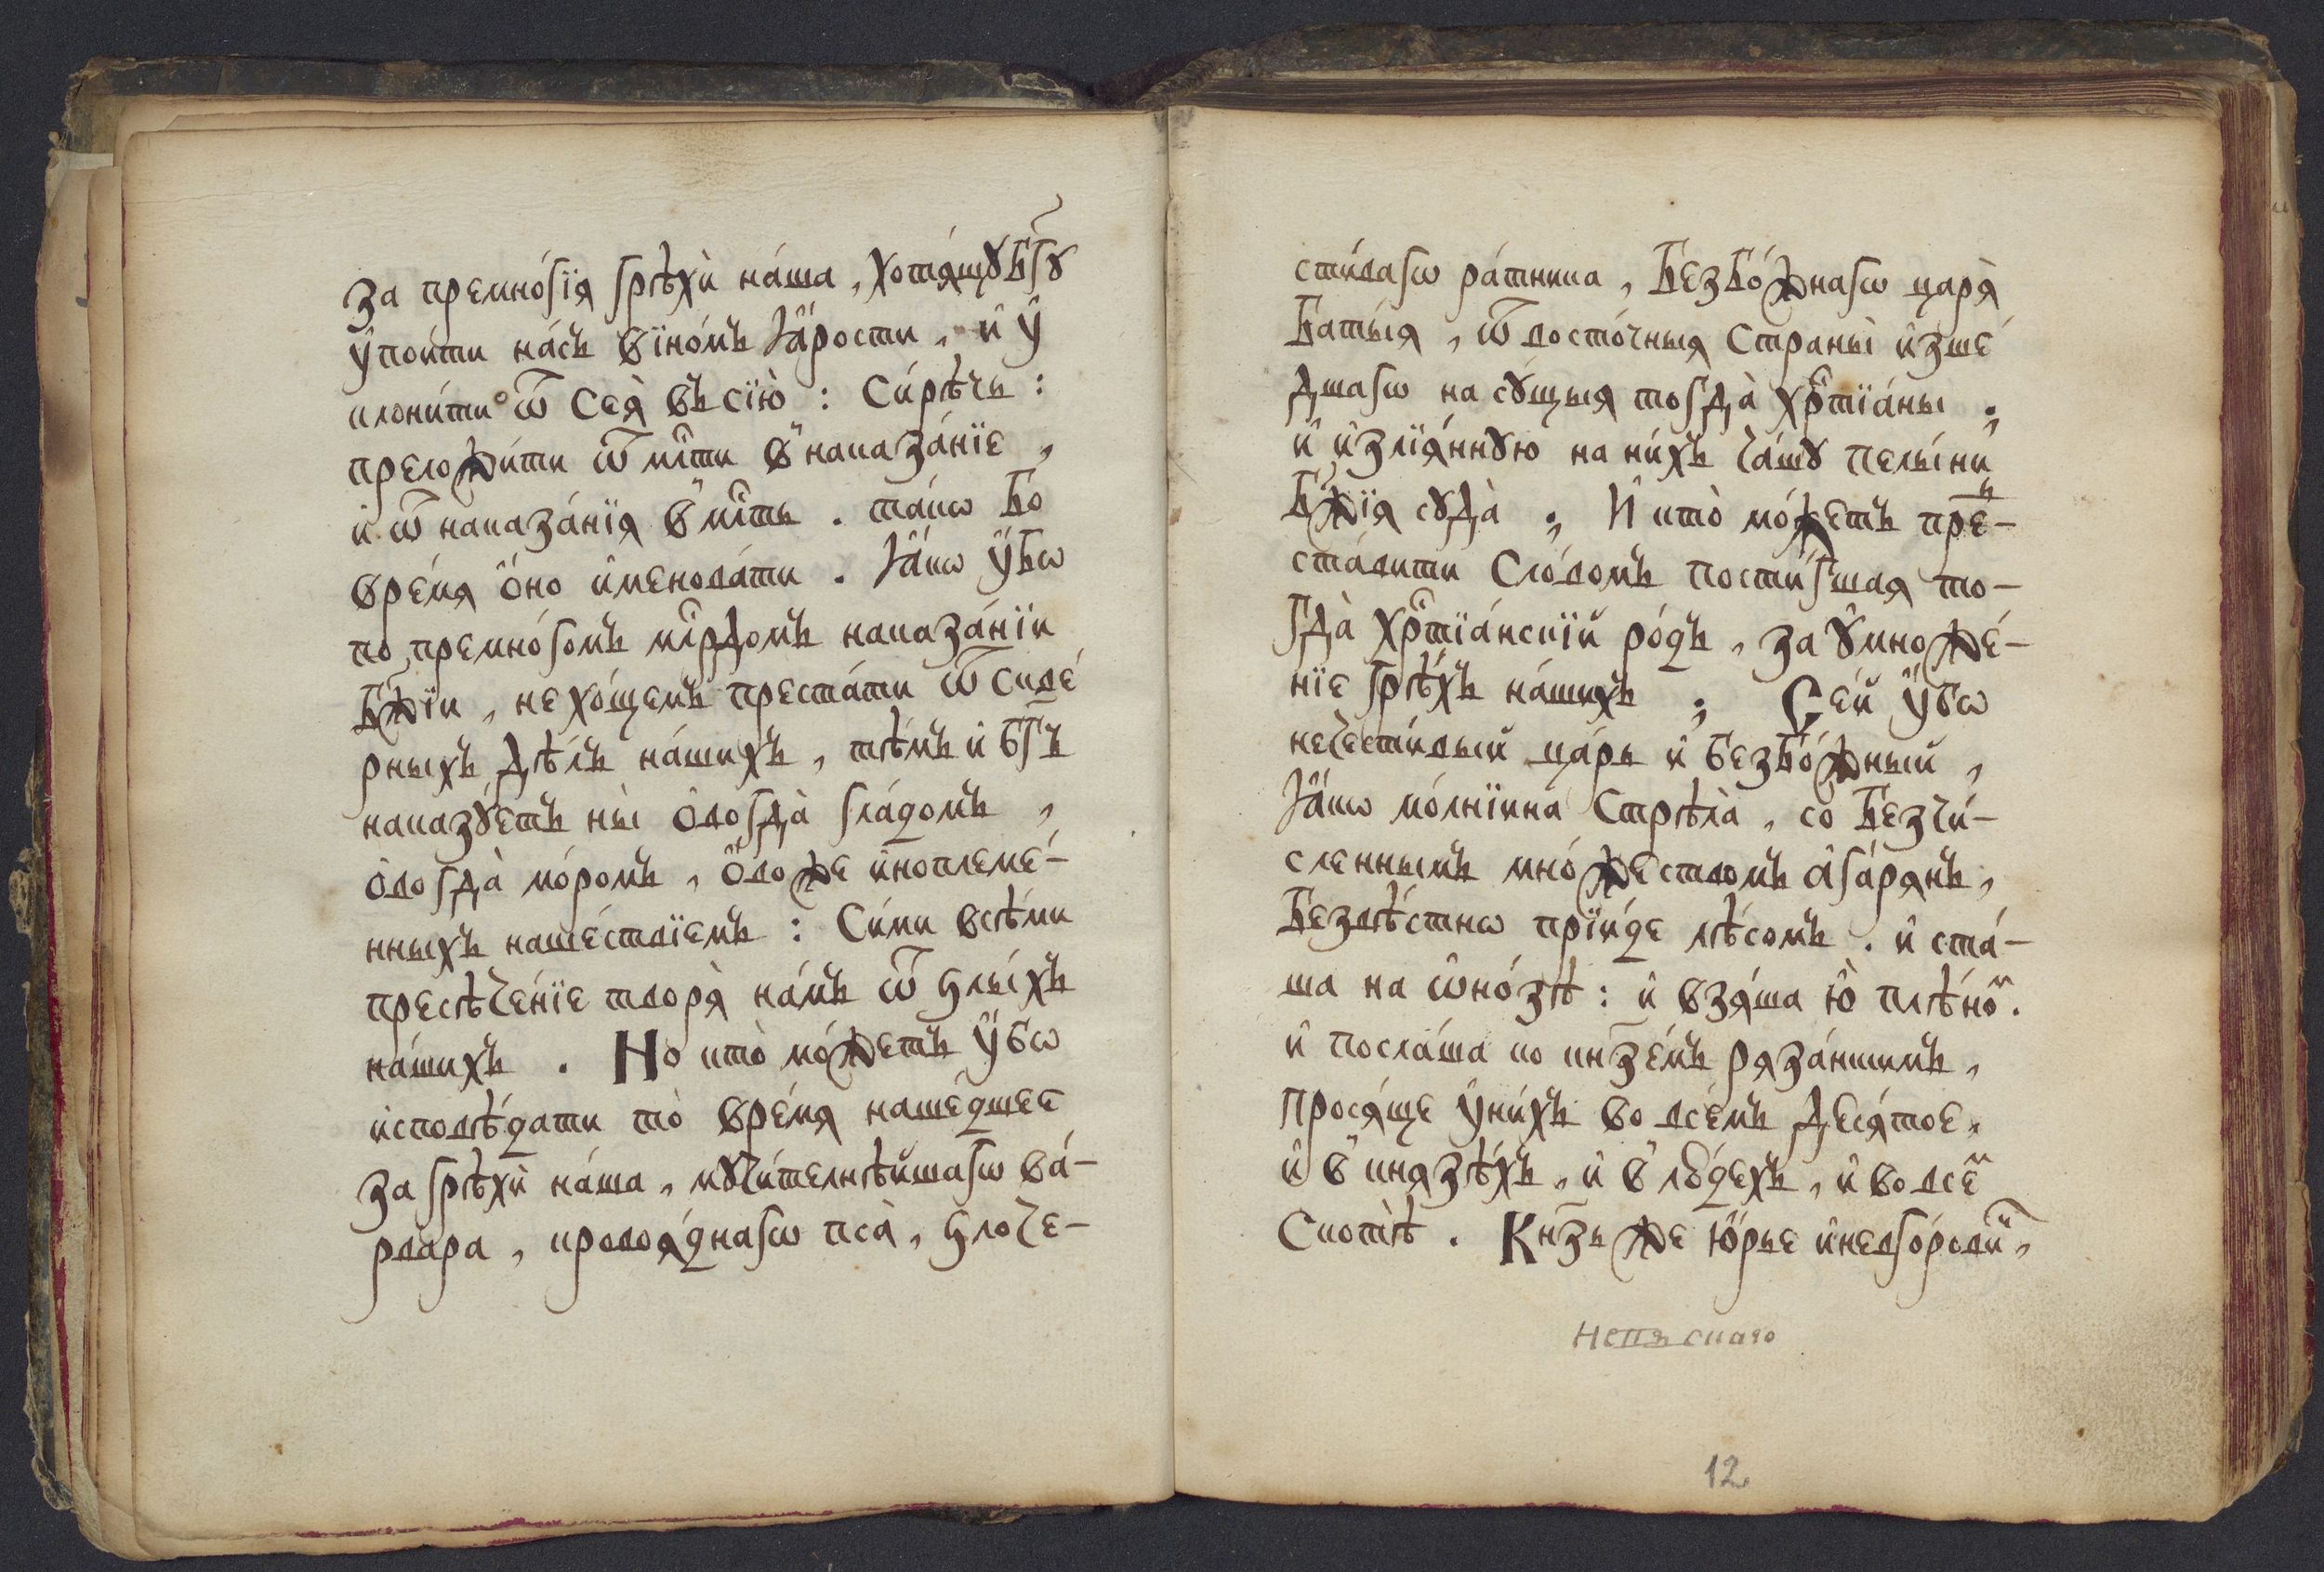 за премно́гїѧ грѣхѝ на́ша, хотѧ́щꙋ бг҃ꙋ
ᲂу҆пои́ти на́съ вїно́мъ ꙗ҆́рости, и҆ ᲂу҆
клони́ти ѿ сеѧ̀ въ сїю̀: си́рѣчь:
преложи́ти ѿ млⷭ҇ти в наказа́нїе,
и҆ ѿ наказа́нїѧ в млⷭ҇ть. та́кѡ бо
вре́мѧ о҆́но и҆менова́ти. ꙗ҆́кѡ ᲂу҆́бѡ
по премно́гомъ млⷭ҇рдомъ наказа́нїи
бж҃їи, не хо́щемъ преста́ти ѿ скве́
рныхъ дѣ́лъ на́шихъ, тѣ́мъ и҆ бг҃ъ
наказꙋ́етъ ны̀ о҆вогда̀ гла́домъ,
о҆вогда̀ мо́ромъ, о҆́воже и҆ноплеме́-
нныхъ наше́ствїемъ: си́ми всѣ́ми
пресѣче́нїе творѧ̀ на́мъ ѿ ѕлы́хъ
на́шихъ. Но кто̀ мо́жетъ ᲂу҆́бѡ
и҆сповѣ́дати то̀ вре́мѧ наше́дшее
за грѣхѝ на́ша, мꙋчи́телнѣйшагѡ ва́-
рвара, кровоѧ́днагѡ пса̀, ѕлоче-
сти́вагѡ ра́тника, безбо́жнагѡ царѧ̀
Баты́ѧ, ѿ восто́чныѧ страны̀ и҆зше́
дшагѡ на сꙋ́щыѧ тогда̀ хрⷭ҇тїа́ны;
и҆ и҆злїѧ́ннꙋю на ни́хъ ча́шꙋ пелы́ни
бж҃їѧ сꙋда̀; И кто̀ мо́жетъ пред-
ста́вити сло́вомъ пости́гшаѧ то-
гда̀ хрⷭ҇тїа́нскїй ро́дъ, за ᲂу҆множе́-
нїе грѣ́хъ на́шихъ; Се́й ᲂу҆́бѡ
нечести́вый ца́рь и҆ безбо́жный,
ꙗ҆́кѡ мо́лнїина стрѣла̀, со безчи́-
сленнымъ мно́жествомъ а҆га́рѧнъ,
безвѣ́стнѡ прїи́де лѣ́сомъ. и҆ ста́-
ша на ѡ҆но́зѣ: и҆ взѧ́ша ю҆̀ плѣ́номъ.
и҆ посла́ша ко кнѧ҃зе́мъ рѧза́нскимъ,
просѧ́ще ᲂу҆ни́хъ во все́мъ десѧ́тое,
и҆ в кнѧзѣ́хъ, и҆ в лю́дехъ, и҆ во все́мъ
скотѣ̀. Кнѧ҃зь же ю҆́рье и҆нево́рови
12